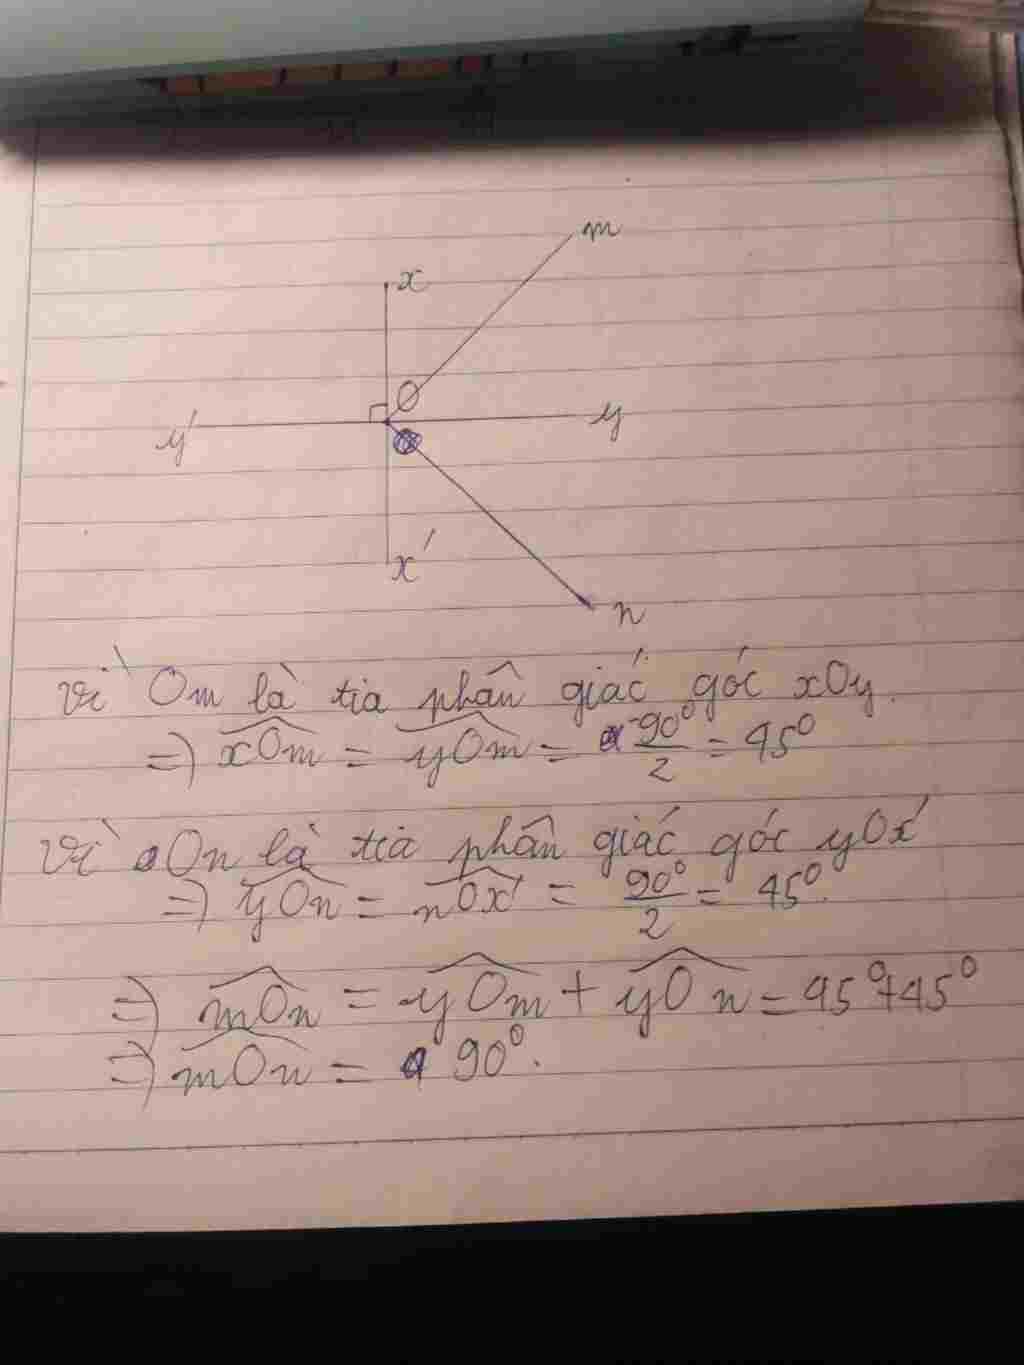 m
x
O
y' y
x'
n
Vì Om là tia phân giác góc xOy.
=) xOm = yOm = 90⁰/2 = 45⁰
Vì On là tia phân giác góc yOx'
=) yOn = nOx' = 90⁰/2 = 45⁰.
=) mOn = yOm + yOn = 45⁰+45⁰
=) mOn = 90⁰.